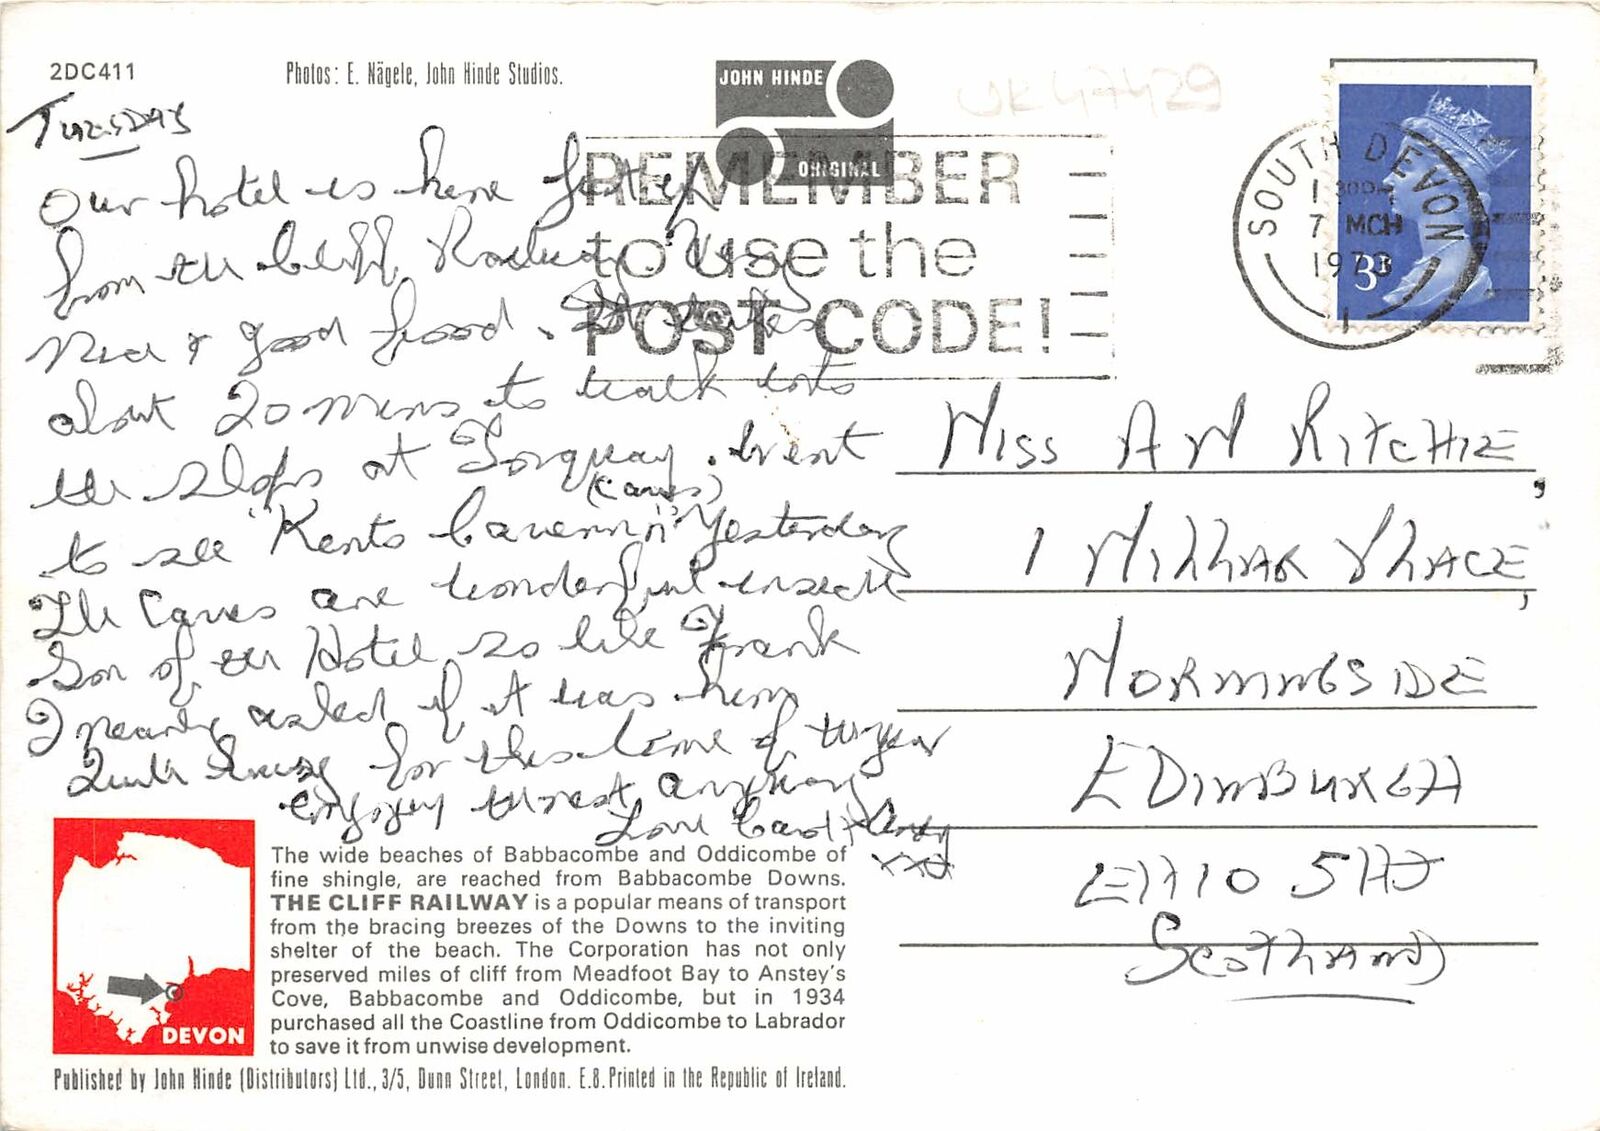 2DC411
Photos: E. Nägele, John Hinde Studios.
JOHN HINDE
ORIGINAL
UK47429
REMEMBER
to use the
POST CODE!
SOUTH DEVON
7 MCH
1973
1
3P
Tuesday
Our hotel is here just up
from the Cliff Railway. Very
Nice & good food. It takes
about 20 mins to walk into
the shops at Torquay. Went
(Caves)
to see "Kents Cavern" Yesterday
The Caves are wonderful inside
Son of the Hotel so like Frank
I nearly asked if it was him
Quite busy for this time of the year
enjoying the rest anyway
Love Carol &
xxx
Miss A M Ritchie,
1 Millar Place,
Morningside
Edinburgh
EH10 5HJ
Scotland
The wide beaches of Babbacombe and Oddicombe of
fine shingle, are reached from Babbacombe Downs.
THE CLIFF RAILWAY is a popular means of transport
from the bracing breezes of the Downs to the inviting
shelter of the beach. The Corporation has not only
preserved miles of cliff from Meadfoot Bay to Anstey's
Cove, Babbacombe and Oddicombe, but in 1934
purchased all the Coastline from Oddicombe to Labrador
to save it from unwise development.
DEVON
Published by John Hinde (Distributors) Ltd., 3/5, Dunn Street, London. E.8. Printed in the Republic of Ireland.